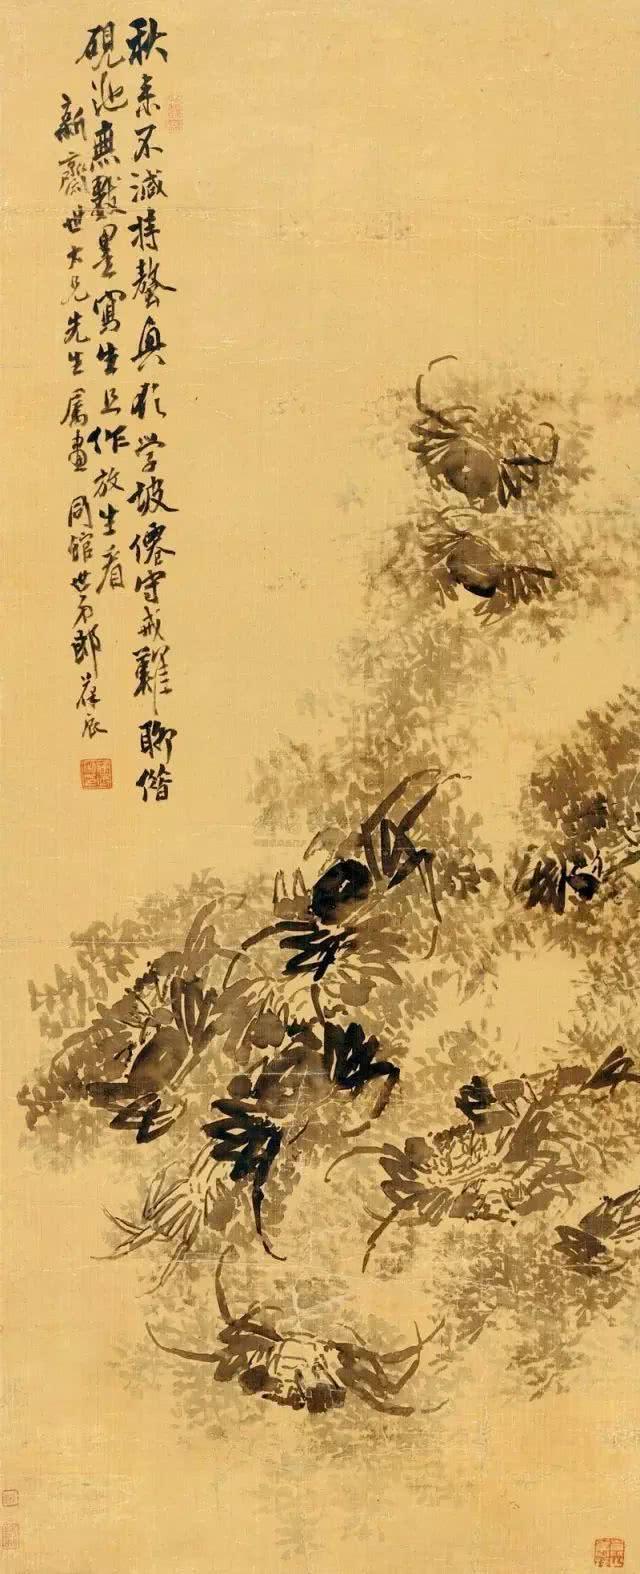 秋来不減持螯興欲学坡僊守戒難聊借
硯池無數墨寫生且作放生看
新齋世大兄先生屬畫同館世弟郎葆辰